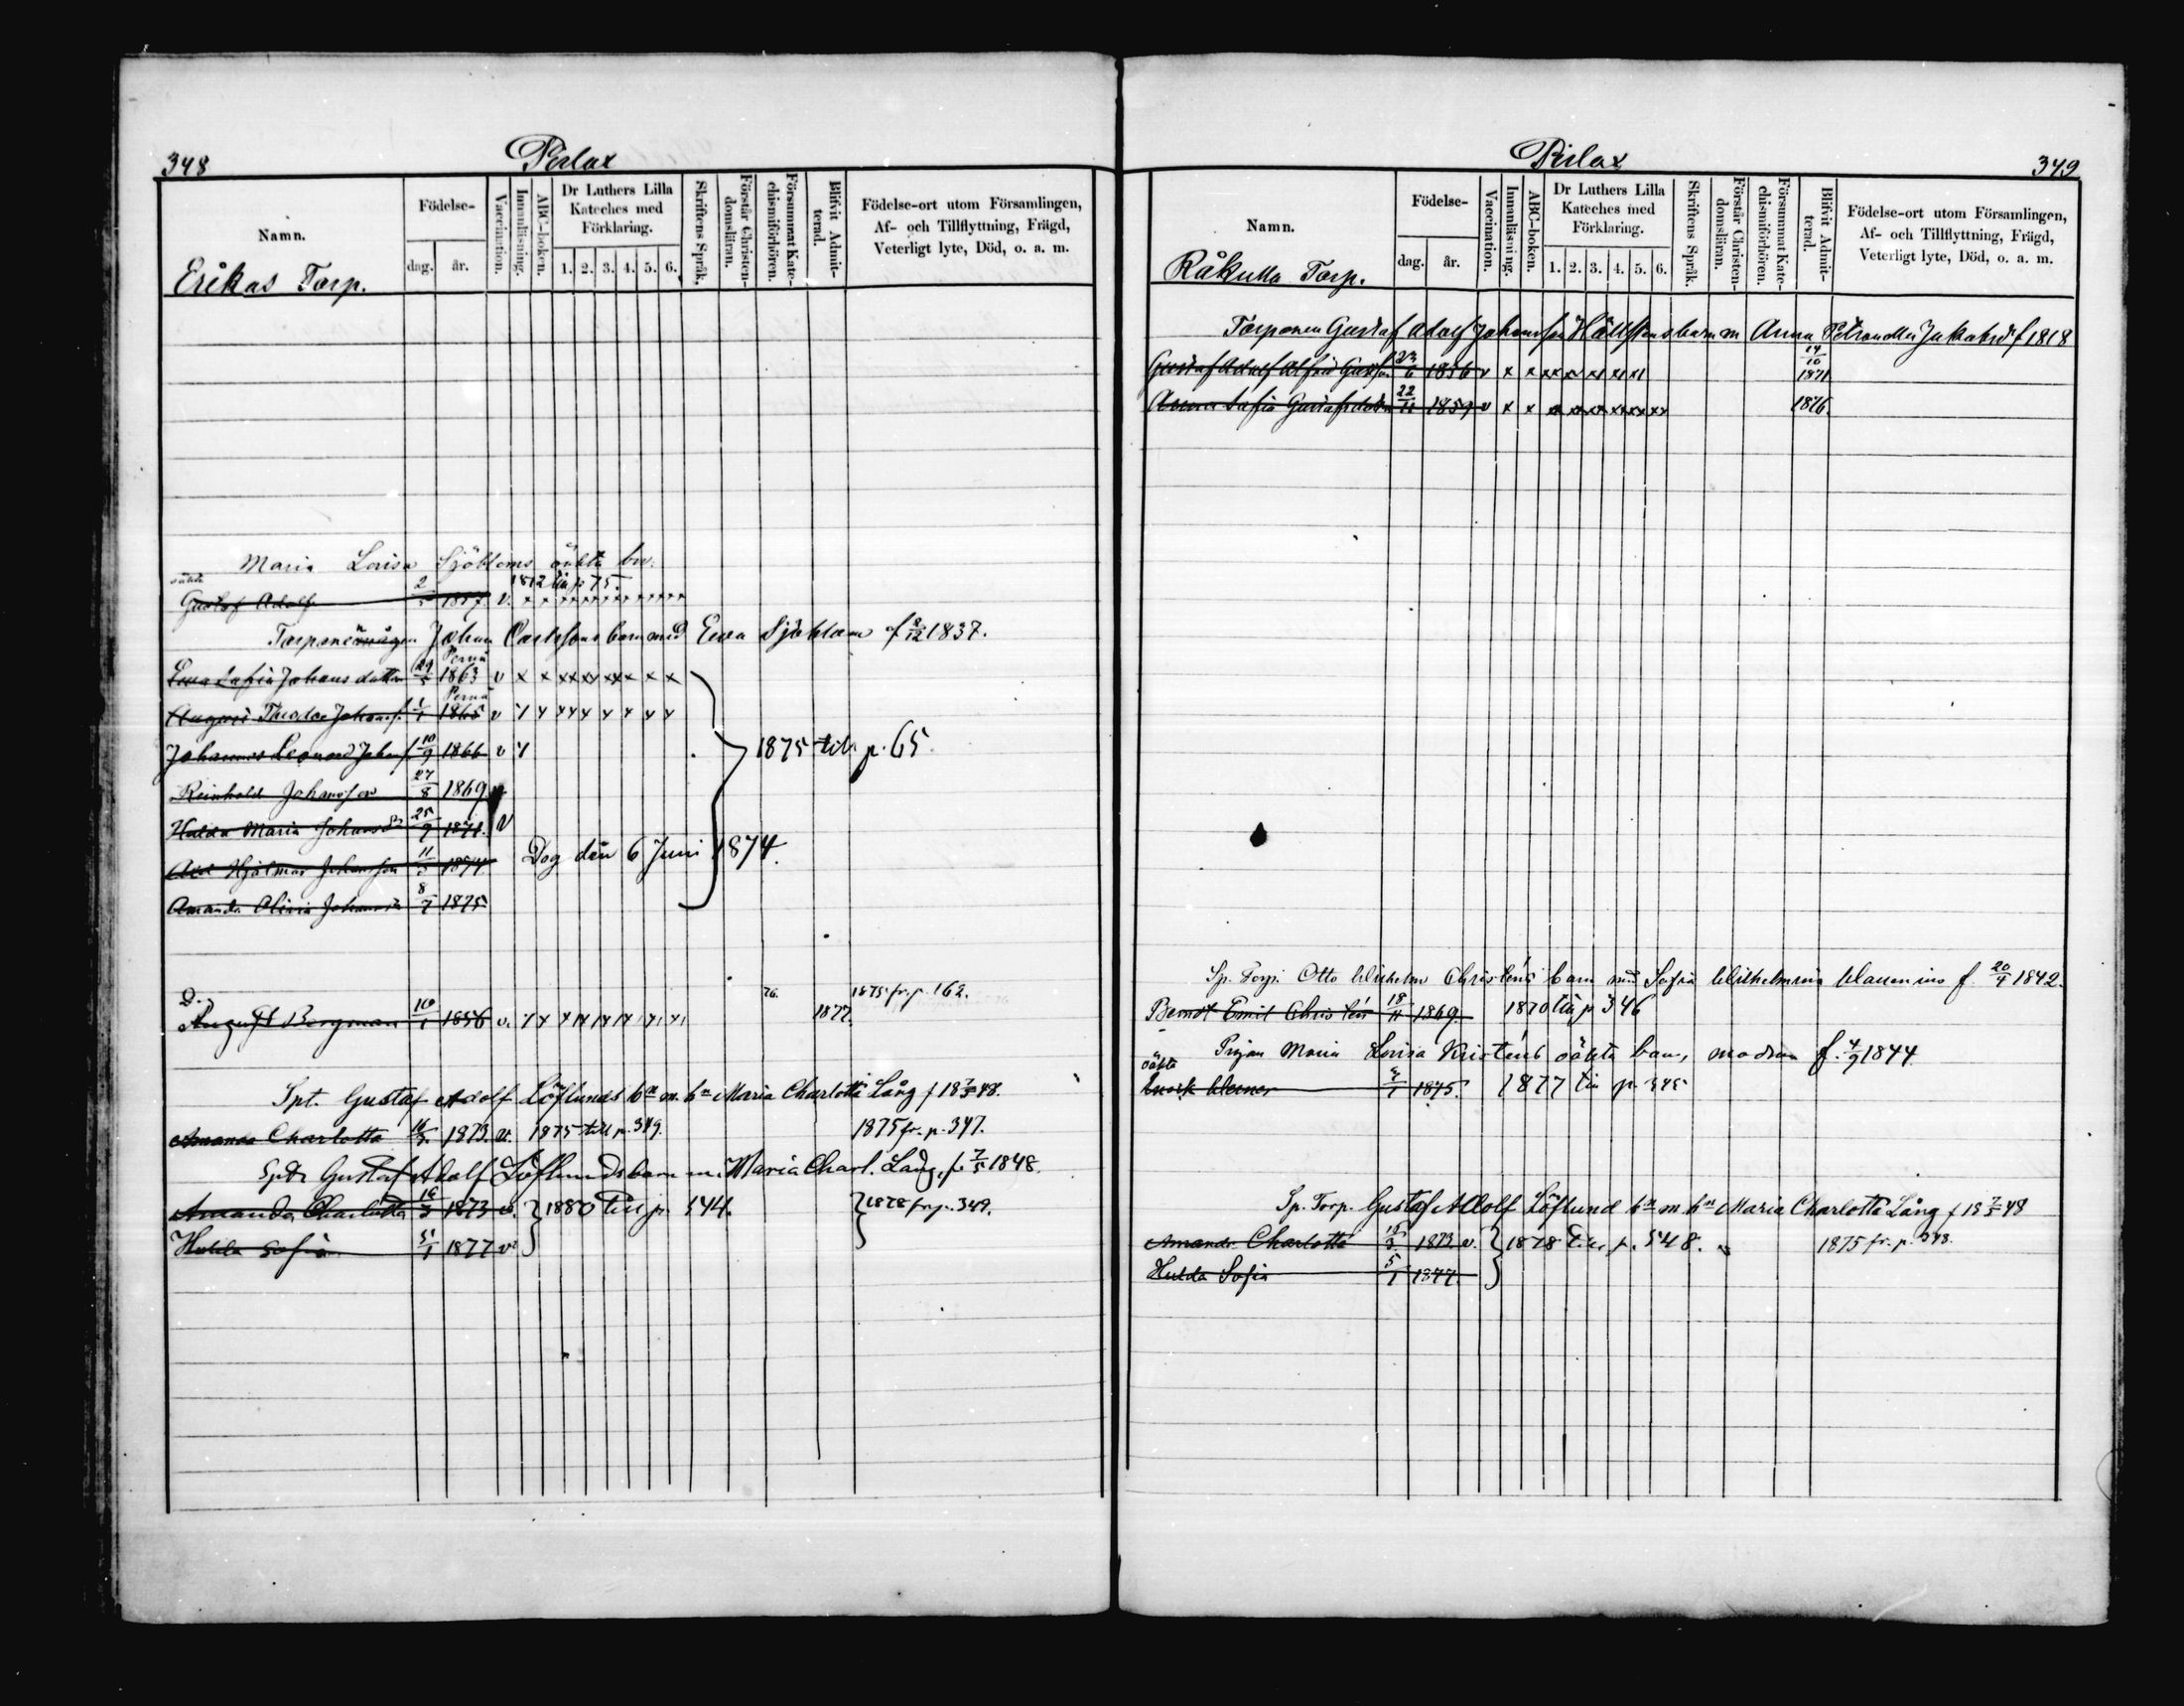 348 Pirlax
Namn. Födelse- dag. år. Vaccination. Innanläsning. ABC-boken. Dr Luthers Lilla Kateches med Förklaring. 1. 2. 3. 4. 5. 6. Skriftens Språk. Förstår Christendomsläran. Försummat Katechismiförhören. Blifvit Admitterad. Födelse-ort utom Församlingen, Af- och Tillflyttning, Frägd, Veterligt lyte, Död, o. a. m.
Erikas Torp.
Maria Lovisa Sjöbloms oäkta bn.
oäkta 1872 till p 75.
Gustaf Adolf 2/5 1857. v. x x x x x x x x x x x
Johan Carlssons barn med Ewa Sjöblom f 2/12 1837.
Pernå
Ewa Sofia Johans dotter 29/5 1863 v x x xx xx xx x x x
Pernå
August Theodor Johanss. 1/1 1865 v x x x x x x x x
Johannes Leonard Johanss. 10/9 1866 v x 1875 till p. 65.
Reinhold Johansson 27/8 1869 v
Hulda Maria Johansdr 25/9 1871. v
Axel Hjalmar Johansson 11/5 1874. Dog den 6 Juni 1874.
Amanda Olivia Johansdr 8/7 1875
D. 76. 1875 fr. p. 162.
August Bergman 16/1 1856 v. x x x x x x x 1877.
Spt. Gustaf Adolf Löflunds bn m. hn Maria Charlotta Lång f 18 7/5 48.
Amanda Charlotta 16/3 1873 v. 1875 till p. 349. 1875 fr. p. 347.
Gustaf Adolf Löflunds barn m. Maria Charl. Lång, f. 7/5 1848.
Amanda Charlotta 16/3 1873 v. 1880 till p. 544. 1878 fr p. 349.
Hulda Sofia 5/1 1877 v
Pirlax 349
Namn. Födelse- dag. år. Vaccination. Innanläsning. ABC-boken. Dr Luthers Lilla Kateches med Förklaring. 1. 2. 3. 4. 5. 6. Skriftens Språk. Förstår Christendomsläran. Försummat Katechismiförhören. Blifvit Admitterad. Födelse-ort utom Församlingen, Af- och Tillflyttning, Frägd, Veterligt lyte, Död, o. a. m.
Råkulla Torp.
Torparen Gustaf Adolf Johansson Hällstens barn m Anna Petronella Jakobsdr f 1818
Gustaf Adolf Alfrid Gustfs. 23/6 1856 v x x xx xx xx xx xx 14/10 1871
Anna Sofia Gustafsdotter 22/11 1859 v x x xx xx xx xx xx xx 1876.
Sp. Torp. Otto Wilhelm Christens barn med Sofia Wilhelmina f. 20/4 1842.
Berndt Emil Christen 18/11 1869. 1870 till p 346
Pigan Maria Lovisa Kristens oäkta barn, modren f. 4/9 1844.
oäkta
Werner 1875. 1877 till p. 345
Sp. Torp. Gustaf Adolf Löflund bn m. hn Maria Charlotta Lång f 18 7/5 48
Amanda Charlotta 16/3 1873. v. 1878 till p. 348. 1875 fr. p. 348.
Hulda Sofia 5/1 1877.